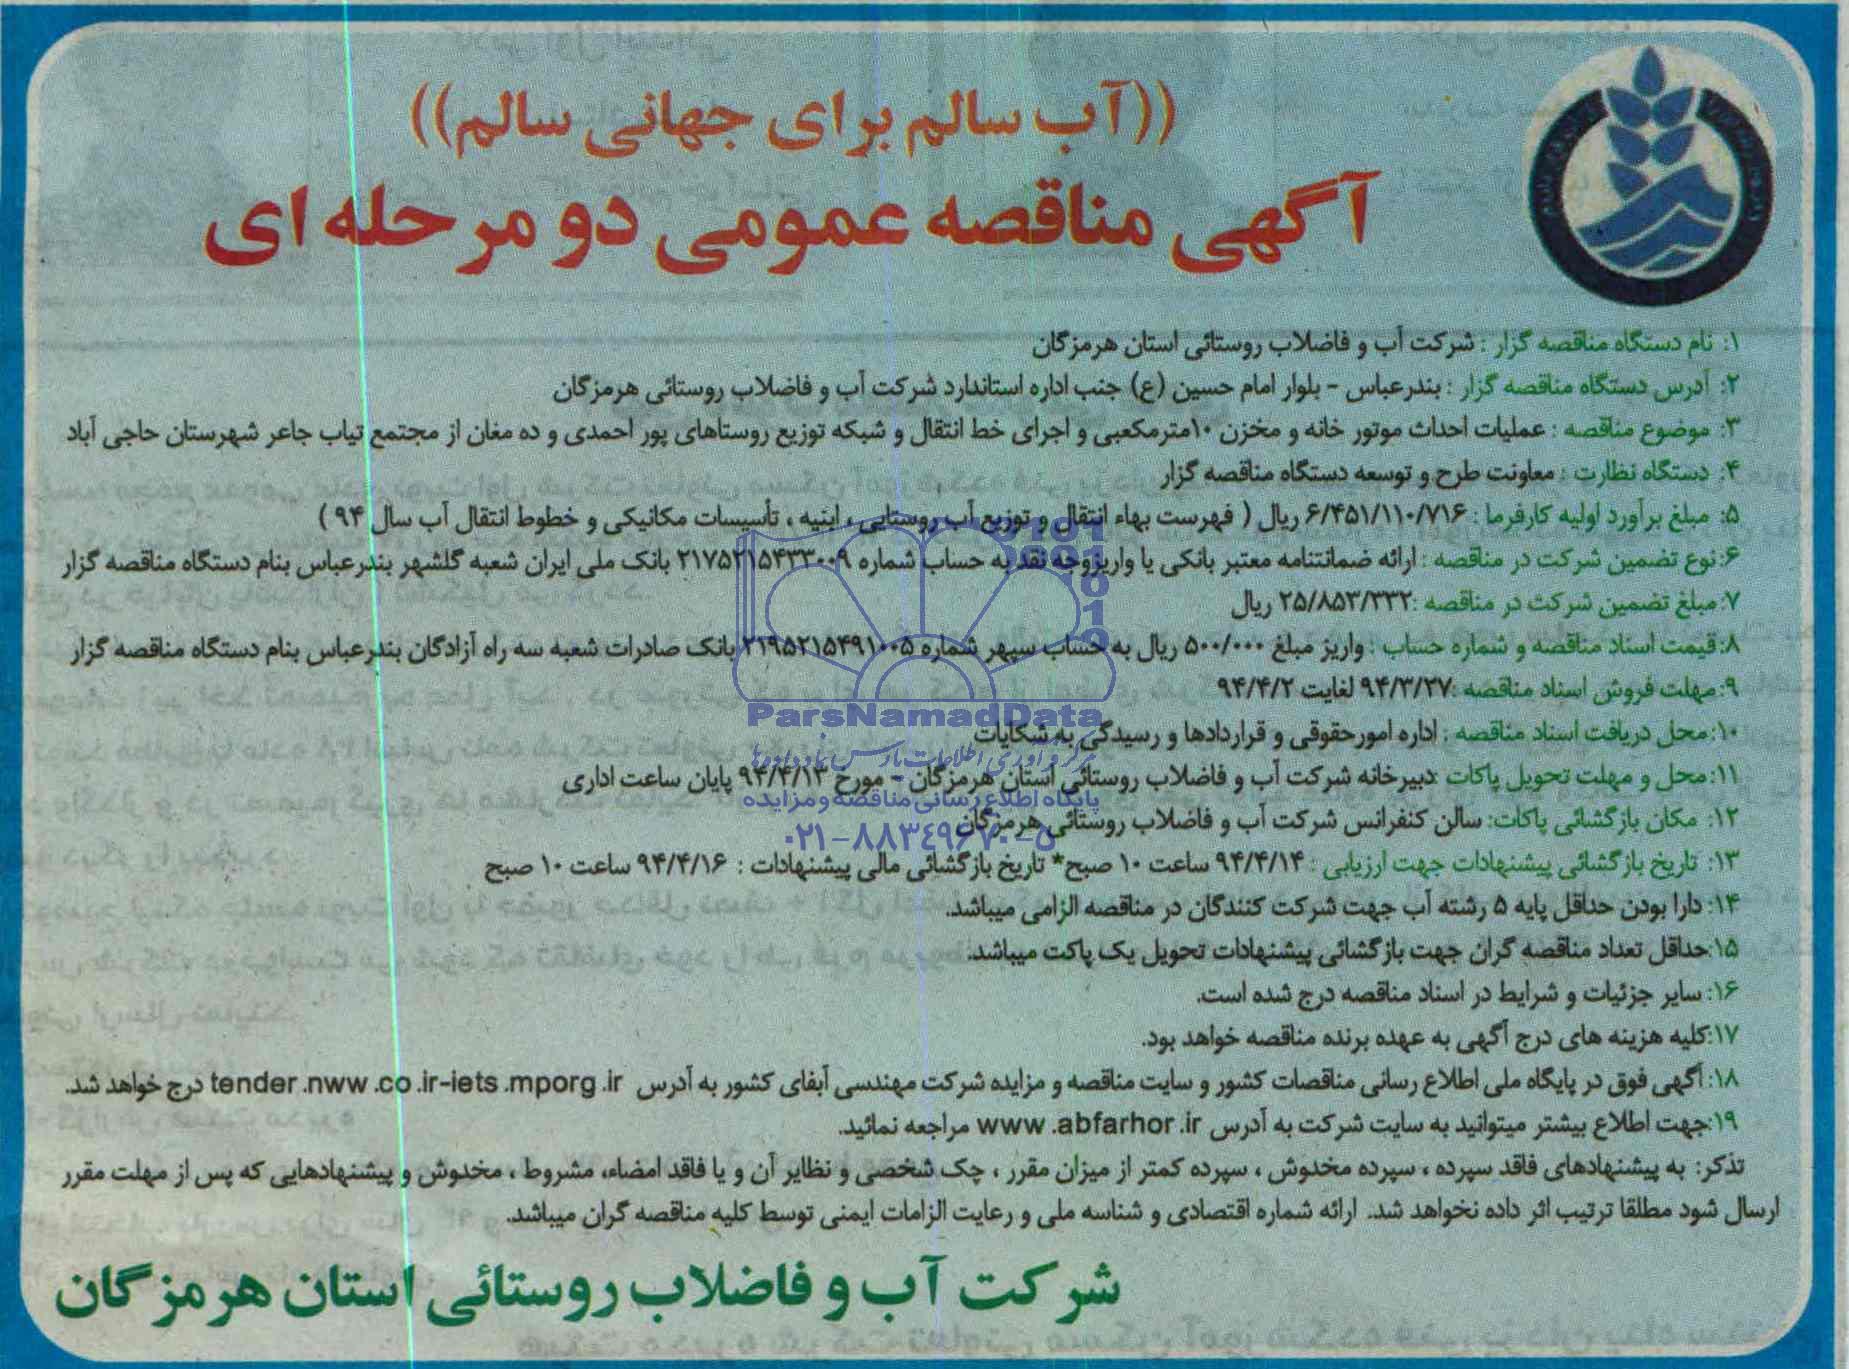 ((آب سالم برای جهانی سالم))
آگهی مناقصه عمومی دو مرحله ای
۱: نام دستگاه مناقصه گزار : شرکت آب و فاضلاب روستائی استان هرمزگان
۲: آدرس دستگاه مناقصه گزار : بندرعباس - بلوار امام حسین (ع) جنب اداره استاندارد شرکت آب و فاضلاب روستائی هرمزگان
۳: موضوع مناقصه : عملیات احداث موتور خانه و مخزن ۱۰مترمکعبی و اجرای خط انتقال و شبکه توزیع روستاهای پور احمدی و ده مغان از مجتمع تیاب جاعر شهرستان حاجی آباد
۴: دستگاه نظارت : معاونت طرح و توسعه دستگاه مناقصه گزار
۵: مبلغ برآورد اولیه کارفرما : ۶/۴۵۱/۱۱۰/۷۱۶ ریال ( فهرست بهاء انتقال و توزیع آب روستایی ، ابنیه ، تأسیسات مکانیکی و خطوط انتقال آب سال ۹۴ )
۶:نوع تضمین شرکت در مناقصه : ارائه ضمانتنامه معتبر بانکی یا واریزوجه نقد به حساب شماره ۲۱۷۵۲۱۵۴۳۳۰۰۹ بانک ملی ایران شعبه گلشهر بندرعباس بنام دستگاه مناقصه گزار
۷:مبلغ تضمین شرکت در مناقصه :۲۵/۸۵۳/۳۳۲ ریال
۸:قیمت اسناد مناقصه و شماره حساب : واریز مبلغ ۵۰۰/۰۰۰ ریال به حساب سپهر شماره ۲۱۹۵۲۱۵۴۹۱۰۰۵ بانک صادرات شعبه سه راه آزادگان بندرعباس بنام دستگاه مناقصه گزار
۹:مهلت فروش اسناد مناقصه :۹۴/۳/۲۷ لغایت ۹۴/۴/۲
ParsNamadData
۱۰:محل دریافت اسناد مناقصه : اداره امورحقوقی و قراردادها و رسیدگی به شکایات
۱۱:محل و مهلت تحویل پاکات :دبیرخانه شرکت آب و فاضلاب روستائی استان هرمزگان - مورخ ۹۴/۴/۱۳ پایان ساعت اداری
پایگاه اطلاع رسانی مناقصه و مزایده
۱۲: مکان بازگشائی پاکات: سالن کنفرانس شرکت آب و فاضلاب روستائی هرمزگان
۰۲۱-۸۸۳۴۹۶۷۰-۵
۱۳: تاریخ بازگشائی پیشنهادات جهت ارزیابی : ۹۴/۴/۱۴ ساعت ۱۰ صبح* تاریخ بازگشائی مالی پیشنهادات : ۹۴/۴/۱۶ ساعت ۱۰ صبح
۱۴: دارا بودن حداقل پایه ۵ رشته آب جهت شرکت کنندگان در مناقصه الزامی میباشد.
۱۵:حداقل تعداد مناقصه گران جهت بازگشائی پیشنهادات تحویل یک پاکت میباشد.
۱۶: سایر جزئیات و شرایط در اسناد مناقصه درج شده است.
۱۷:کلیه هزینه های درج آگهی به عهده برنده مناقصه خواهد بود.
۱۸:آگهی فوق در پایگاه ملی اطلاع رسانی مناقصات کشور و سایت مناقصه و مزایده شرکت مهندسی آبفای کشور به آدرس tender.nww.co.ir-iets.mporg.ir درج خواهد شد.
۱۹:جهت اطلاع بیشتر میتوانید به سایت شرکت به آدرس www.abfarhor.ir مراجعه نمائید.
تذکر: به پیشنهادهای فاقد سپرده ، سپرده مخدوش ، سپرده کمتر از میزان مقرر ، چک شخصی و نظایر آن و یا فاقد امضاء، مشروط ، مخدوش و پیشنهادهایی که پس از مهلت مقرر
ارسال شود مطلقا ترتیب اثر داده نخواهد شد. ارائه شماره اقتصادی و شناسه ملی و رعایت الزامات ایمنی توسط کلیه مناقصه گران میباشد.
شرکت آب و فاضلاب روستائی استان هرمزگان